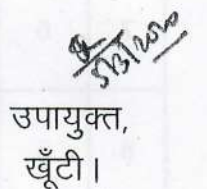 5/3/2020
उपायुक्त,
खूँटी।